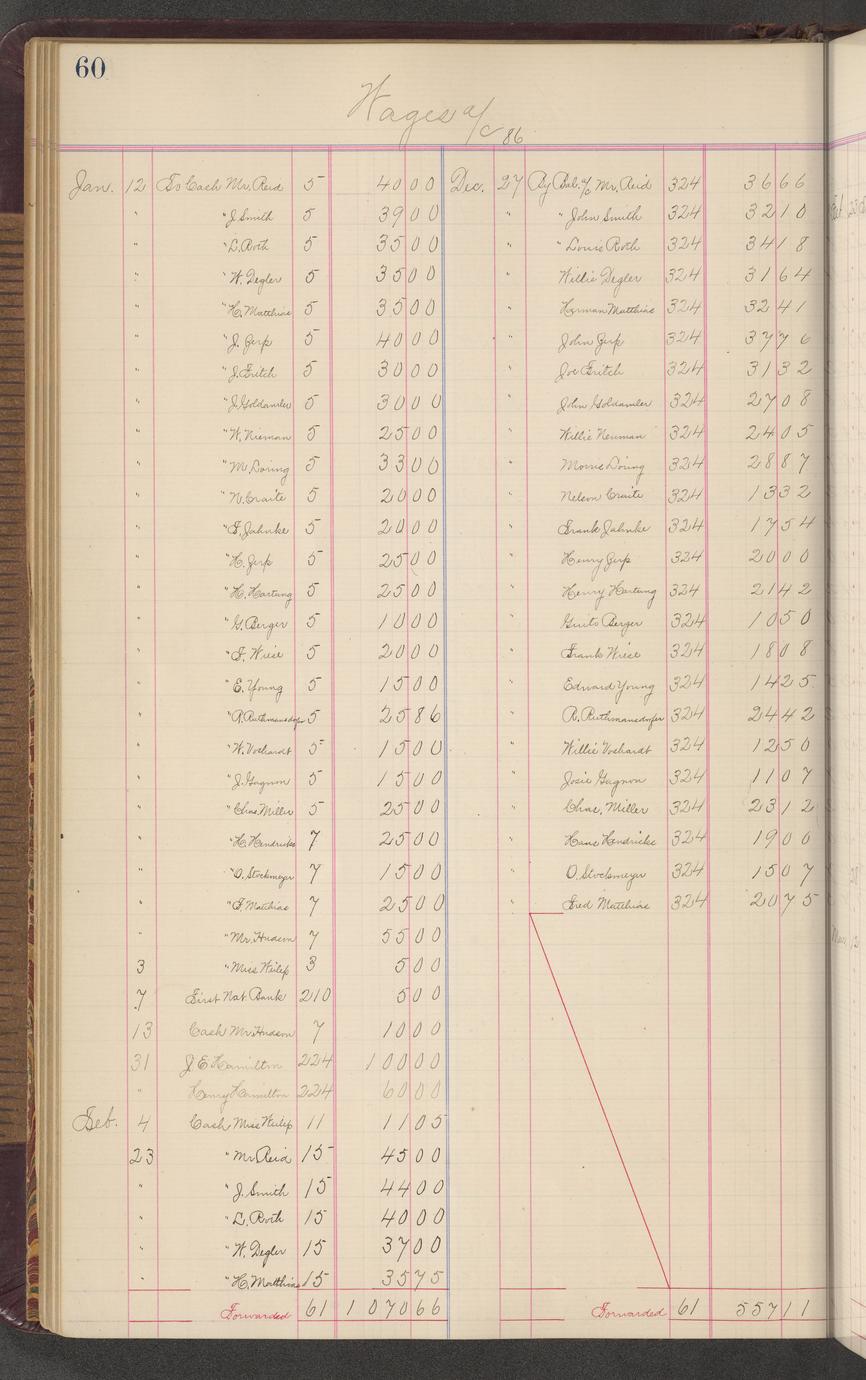 60
Wages a/c 86
Jan. 12 To Cash Mr. Reid 5 40 00 Dec. 27 By Bal. a/c Mr. Reid 324 36 66
" " J. Smith 5 39 00 " " John Smith 324 32 10
" " L. Roth 5 35 00 " " Louis Roth 324 34 18
" " W. Degler 5 35 00 " Willie Degler 324 31 64
" " H. Matthias 5 35 00 " Herman Matthias 324 32 41
" " J. Gerp 5 40 00 " John Gerp 324 37 76
" " J. Fritch 5 30 00 " Joe Fritch 324 31 32
" " J. Goldamler 5 30 00 " John Goldamler 324 27 08
" " W. Nieman 5 25 00 " Willie Neuman 324 24 05
" " M. Doring 5 33 00 " Morris Doring 324 28 87
" " N. Craite 5 20 00 " Nelson Craite 324 13 32
" " F. Jahnke 5 20 00 " Frank Jahnke 324 17 54
" " H. Gerp 5 25 00 " Henry Gerp 324 20 00
" " H. Hartung 5 25 00 " Henry Hartung 324 21 42
" " G. Berger 5 10 00 " Berger 324 10 50
" " F. Wiese 5 20 00 " Frank Wiese 324 18 08
" " E. Young 5 15 00 " Edward Young 324 14 25
" " R. Ruthmansdorfer 5 25 86 " R. Ruthmansdorfer 324 24 42
" " W. Voshardt 5 15 00 " Willie Voshardt 324 12 50
" " J. Gagnon 5 15 00 " Josie Gagnon 324 11 07
" " Chas. Miller 5 25 00 " Chas. Miller 324 23 12
" " H. Hendricks 7 25 00 " Hans Hendricks 324 19 00
" " O. Stocksmeyer 7 15 00 " O. Stocksmeyer 324 15 07
" " F. Matthias 7 25 00 " Fred Matthias 324 20 75
" " Mr. Hudson 7 55 00
3 " Miss Weilep 3 5 00
7 First Nat. Bank 210 5 00
13 Cash Mr. Hudson 7 10 00
31 J. E. Hamilton 224 100 00
" Henry Hamilton 224 60 00
Feb. 4 Cash Miss Weilep 11 11 05
23 " Mr. Reid 15 45 00
" " J. Smith 15 44 00
" " L. Roth 15 40 00
" " W. Degler 15 37 00
" " H. Matthias 15 35 75
Forwarded 61 1070 66 Forwarded 61 557 11